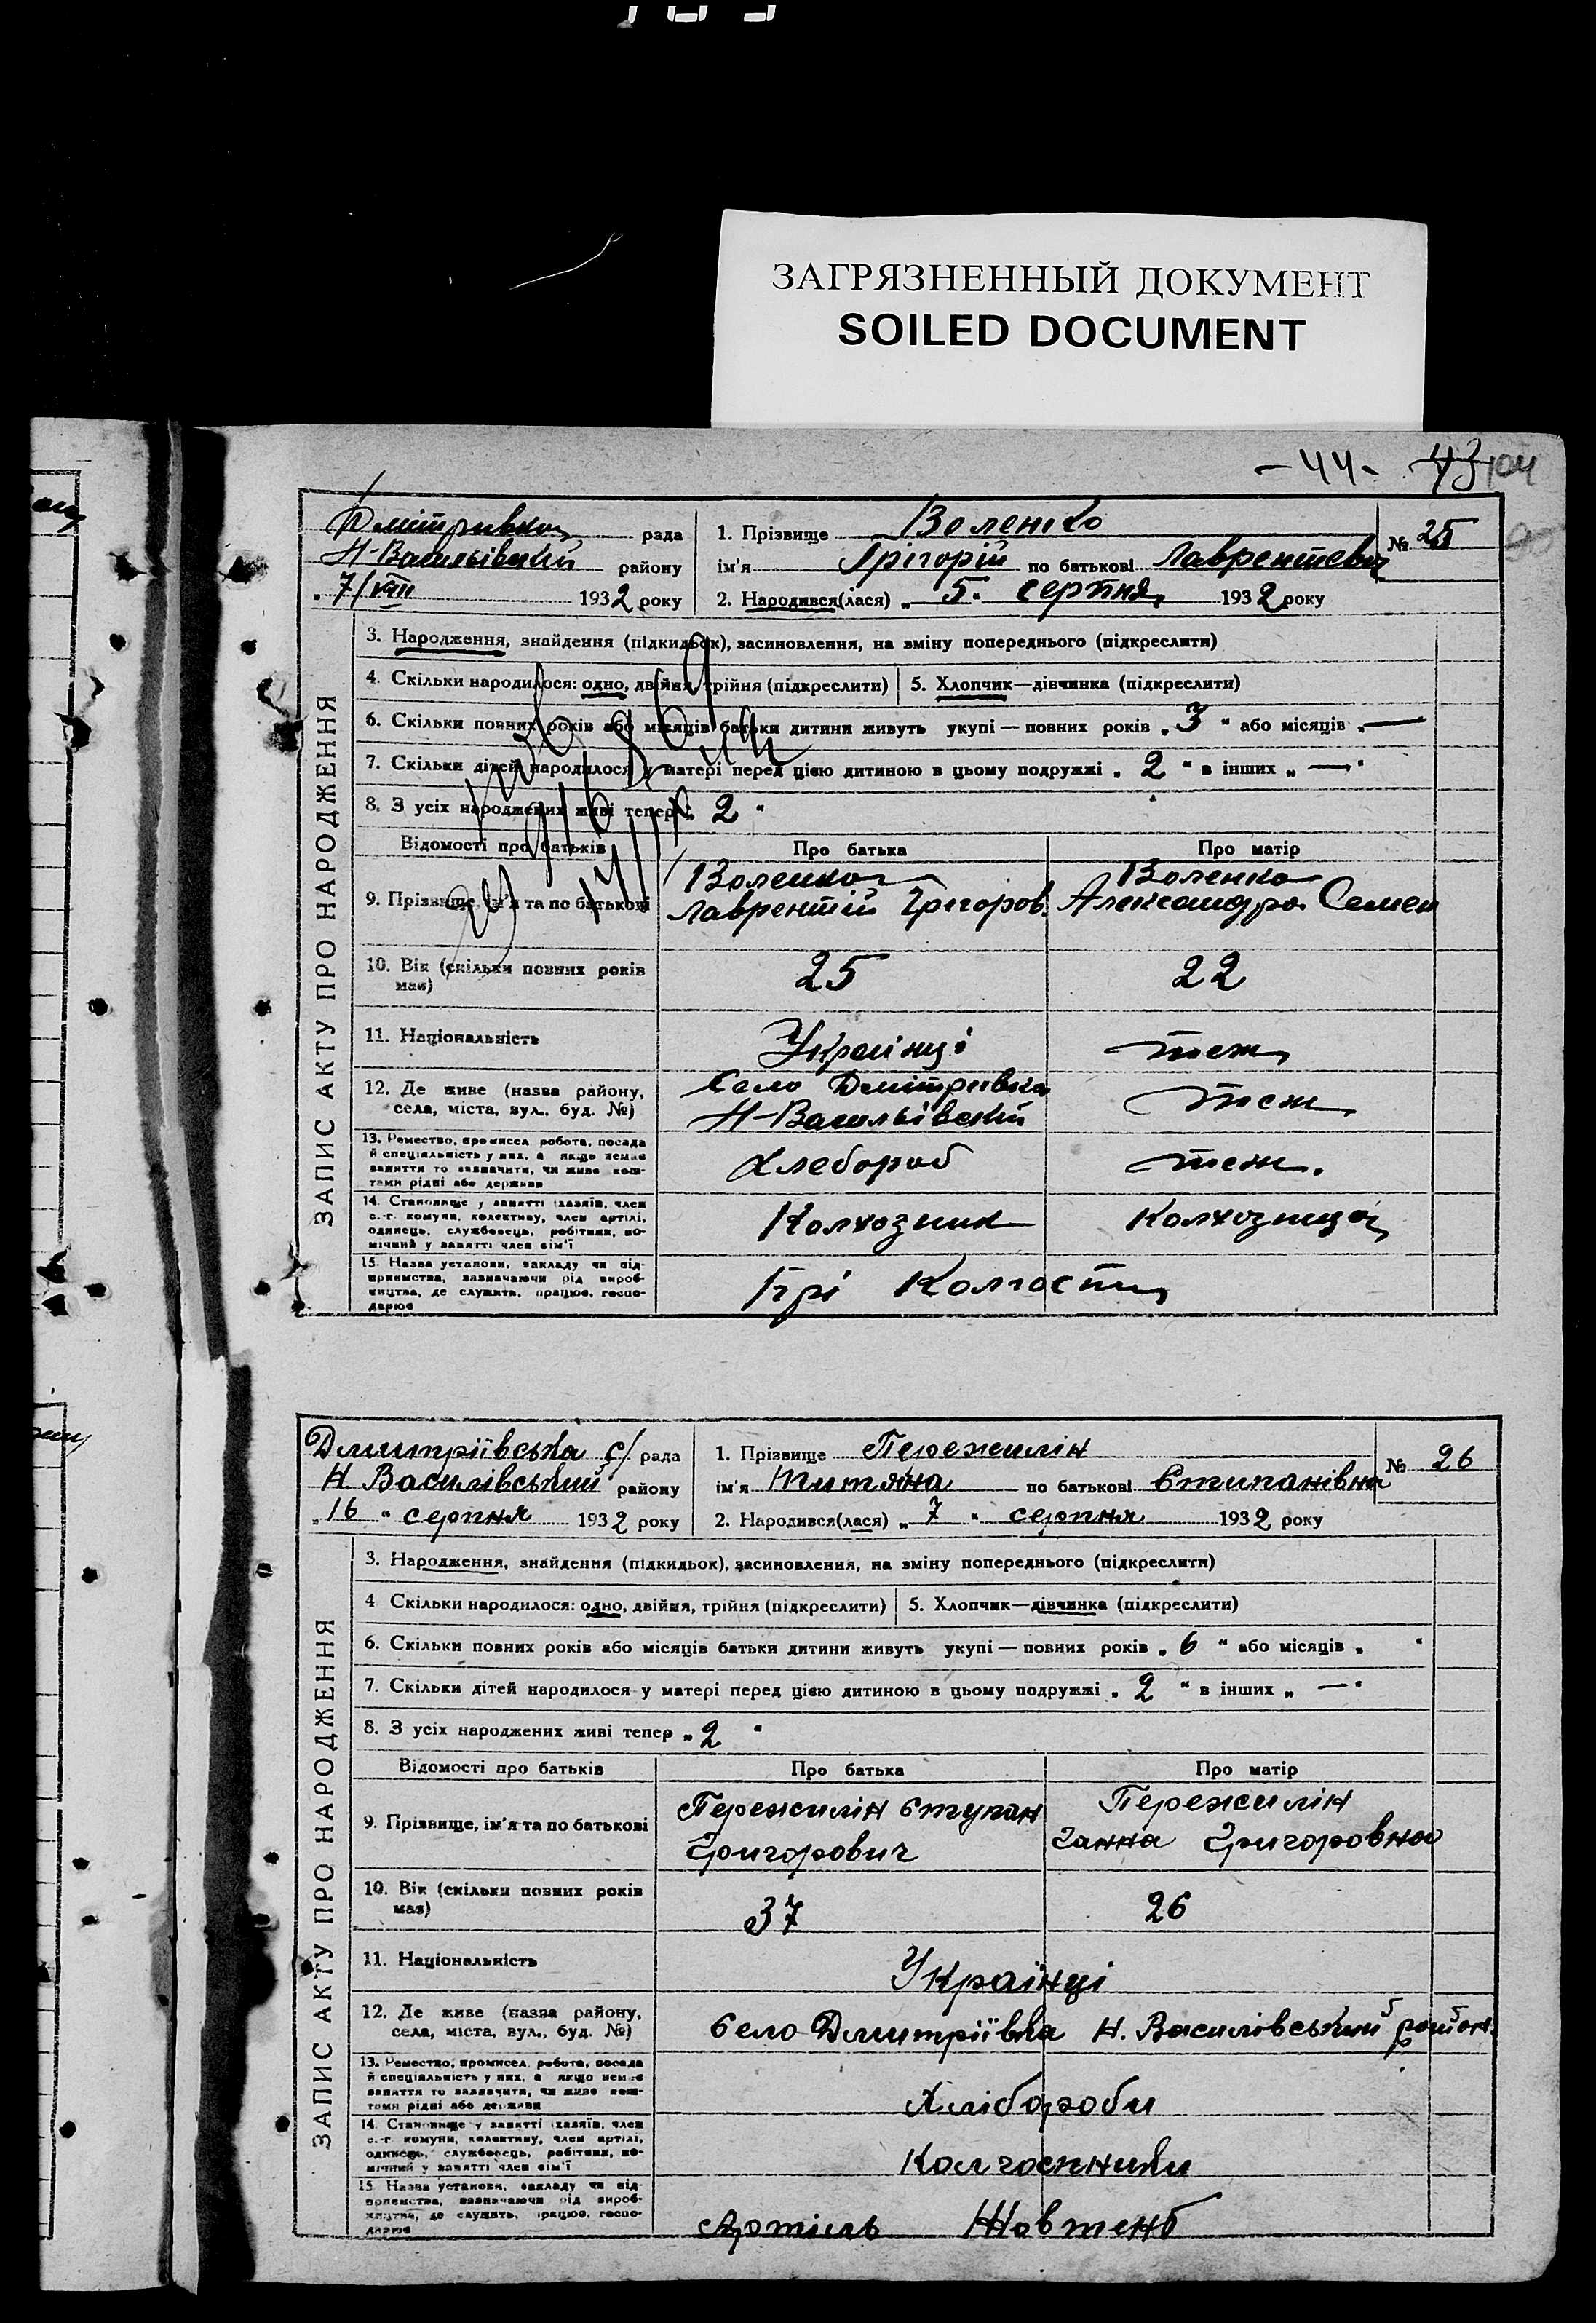 ЗАГРЯЗНЕННЫЙ ДОКУМЕНТ
SOILED DOCUMENT
-44- 43 104
Дмітривка рада
Н-Васильівский району
7/VIII 1932 року
1. Прізвище Воленко
№ 25
ім'я Грігорій по батькові Лаврентевич
2. Народився(лася) „ 5 " серпня 1932 року
ЗАПИС АКТУ ПРО НАРОДЖЕННЯ
3. Народження, знайдення (підкидьок), засиновлення, на зміну попереднього (підкреслити)
4. Скільки народилося: одно, двійня, трійня (підкреслити) 5. Хлопчик—дівчинка (підкреслити)
6. Скільки повних років або місяців батьки дитини живуть укупі — повних років „ 3 " або місяців „ —
7. Скільки дітей народилося у матері перед цією дитиною в цьому подружжі „ 2 " в інших „ — "
8. З усіх народжених живі тепер „ 2 "
Відомості про батьків Про батька Про матір
9. Прізвище, ім'я та по батькові Воленко Лаврентій Грегоров. Воленко Александра Семен
10. Вік (скільки повних років має) 25 22
11. Національність Украінці теж
12. Де живе (назва району, села, міста, вул., буд. №) Село Дмітривка Н-Васильівский теж
13. Ремество, промисел, робота, посада й спеціяльність у них, а якщо немає заняття то зазначити, чи живе коштами рідні або держави Хлебороб теж.
14. Становище у занятті (хазяїн, член с.-г. комуни, колективу, член артілі, одинець, службовець, робітник, помічний у занятті член сім'ї Колхозник Колхозница
15. Назва установи, закладу чи підприємства, зазначаючи рід виробництва, де служить, працює, господарює Прі Колгоспи
Дмитріївська с/ рада
Н. Василівський району
„ 16 " серпня 1932 року
1. Прізвище Пережилін
№ 26
ім'я Титяна по батькові Стипанівна
2. Народився(лася) „ 7 " серпня 1932 року
ЗАПИС АКТУ ПРО НАРОДЖЕННЯ
3. Народження, знайдення (підкидьок), засиновлення, на зміну попереднього (підкреслити)
4 Скільки народилося: одно, двійня, трійня (підкреслити) 5. Хлопчик—дівчинка (підкреслити)
6. Скільки повних років або місяців батьки дитини живуть укупі — повних років „ 6 " або місяців „ "
7. Скільки дітей народилося у матері перед цією дитиною в цьому подружжі „ 2 " в інших „ — "
8. З усіх народжених живі тепер „ 2 "
Відомості про батьків Про батька Про матір
9. Прізвище, ім'я та по батькові Пережилін Ступан Григорович Пережилін Ганна Григоровна
10. Вік (скільки повних років має) 37 26
11. Національність Українці
12. Де живе (назва району, села, міста, вул., буд. №) Село Дмитріївка Н. Василівський район.
13. Ремество, промисел, робота, посада й спеціяльність у них, а якщо немає заняття то зазначити, чи живе коштами рідні або держави Хлібороби
14. Становище у занятті (хазяїн, член с.-г. комуни, колективу, член артілі, одинець, службовець, робітник, помічний у занятті член сім'ї Колгоспники
15. Назва установи, закладу чи підприємства, зазначаючи рід виробництва, де служить, працює, господарює Артіль Жовтень